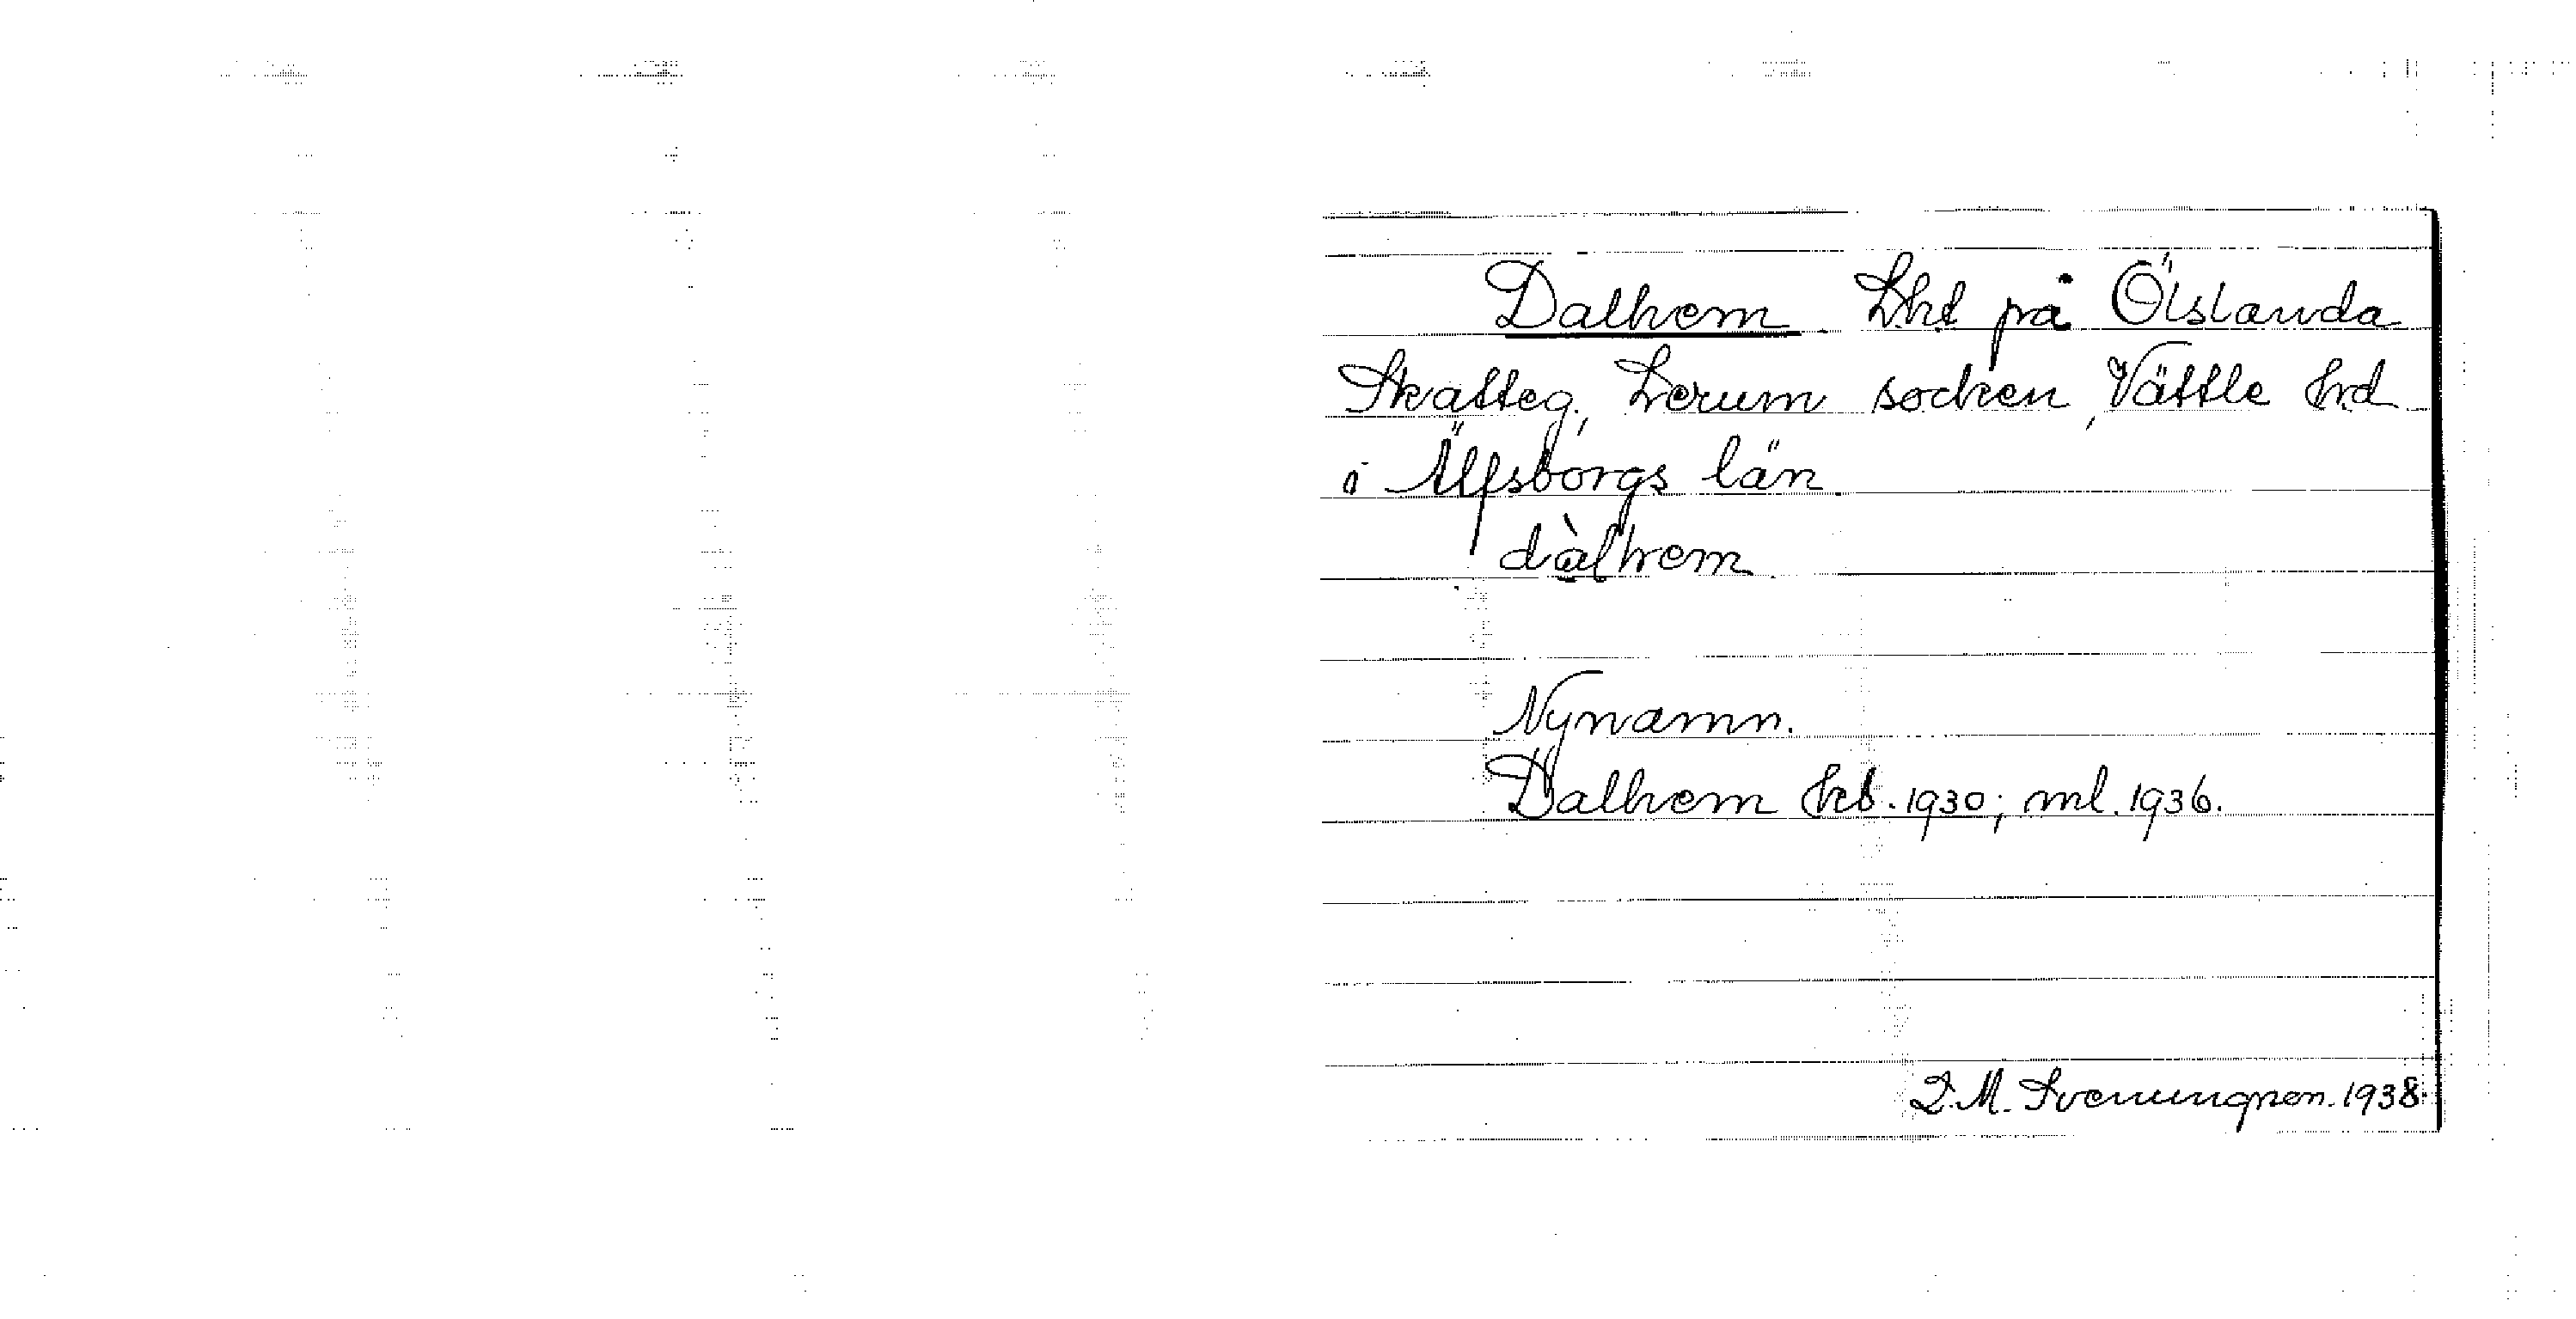 Dalhem. Lht på Ölslanda
Skatteg., Lerum socken, Vättle hrd
i Älfsborgs län.
dàlhem
Nynamn.
Dalhem hrb. 1930; ml. 1936.
M. Svenungsson. 1938